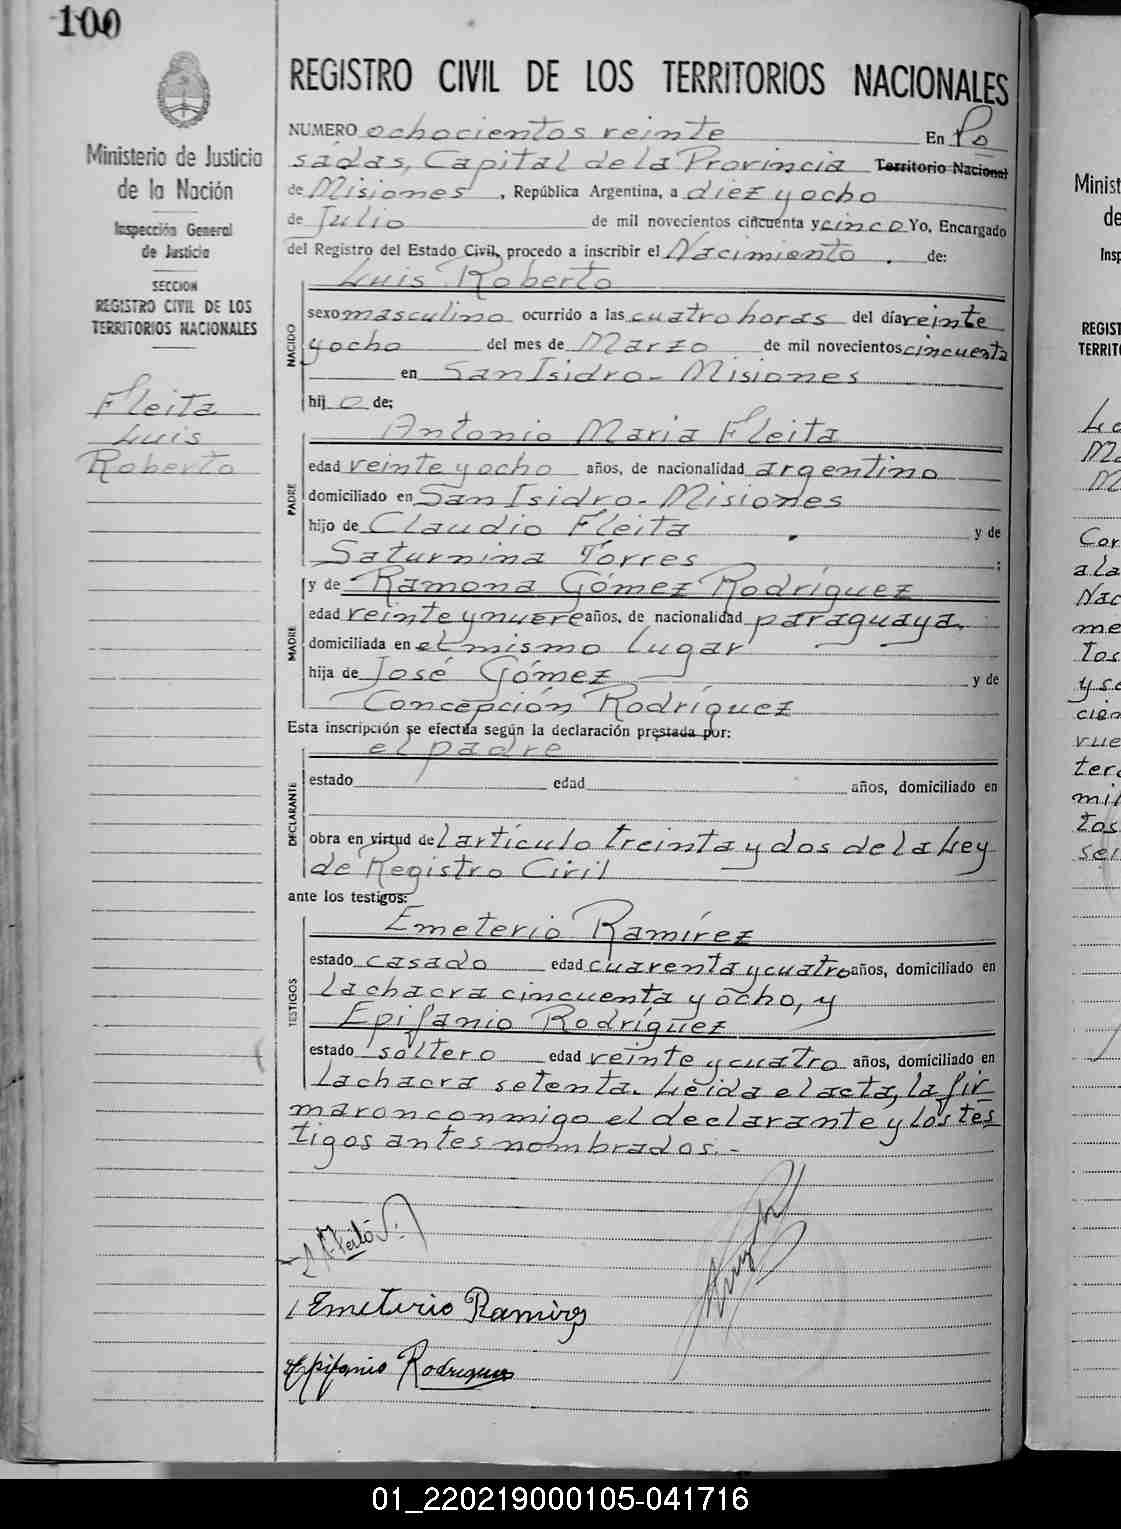 100
Ministerio de Justicia
de la Nación
Inspección General
de Justicia
SECCION
REGISTRO CIVIL DE LOS
TERRITORIOS NACIONALES
Fleita
Luis
Roberto
REGISTRO CIVIL DE LOS TERRITORIOS NACIONALES
NUMERO ochocientos veinte En Po
sadas, Capital de la Provincia Territorio Nacional
de Misiones, República Argentina, a diez y ocho
de Julio de mil novecientos cincuenta y cinco Yo, Encargado
del Registro del Estado Civil, procedo a inscribir el Nacimiento. de:
Luis Roberto
NACIDO
sexo masculino ocurrido a las cuatro horas del día veinte
y ocho del mes de Marzo de mil novecientos cincuenta
en San Isidro - Misiones
hijo de:
Antonio Maria Fleita
PADRE
edad veinte y ocho años, de nacionalidad argentino
domiciliado en San Isidro - Misiones
hijo de Claudio Fleita y de
Saturnina Torres ;
y de Ramona Gómez Rodríguez
MADRE
edad veinte y nueve años, de nacionalidad paraguaya.
domiciliada en el mismo lugar
hija de José Gómez y de
Concepción Rodríguez
Esta inscripción se efectúa según la declaración prestada por:
el padre
DECLARANTE
estado edad años, domiciliado en
obra en virtud de l artículo treinta y dos de la Ley
de Registro Civil
ante los testigos:
Emeterio Ramírez
TESTIGOS
estado casado edad cuarenta y cuatro años, domiciliado en
la chacra cincuenta y ocho, y
Epifanio Rodríguez
estado soltero edad veinte y cuatro años, domiciliado en
la chacra setenta. Leída el acta, la fir
maron conmigo el declarante y los tes
tigos antes nombrados.-
Emeterio Ramirez
Epifanio Rodriguez
Minist
de
Insp
REGIST
TERRIT
Cor
a la
Nac
me
tos
y se
cien
nue
terc
mil
tos
sei
01_220219000105-041716